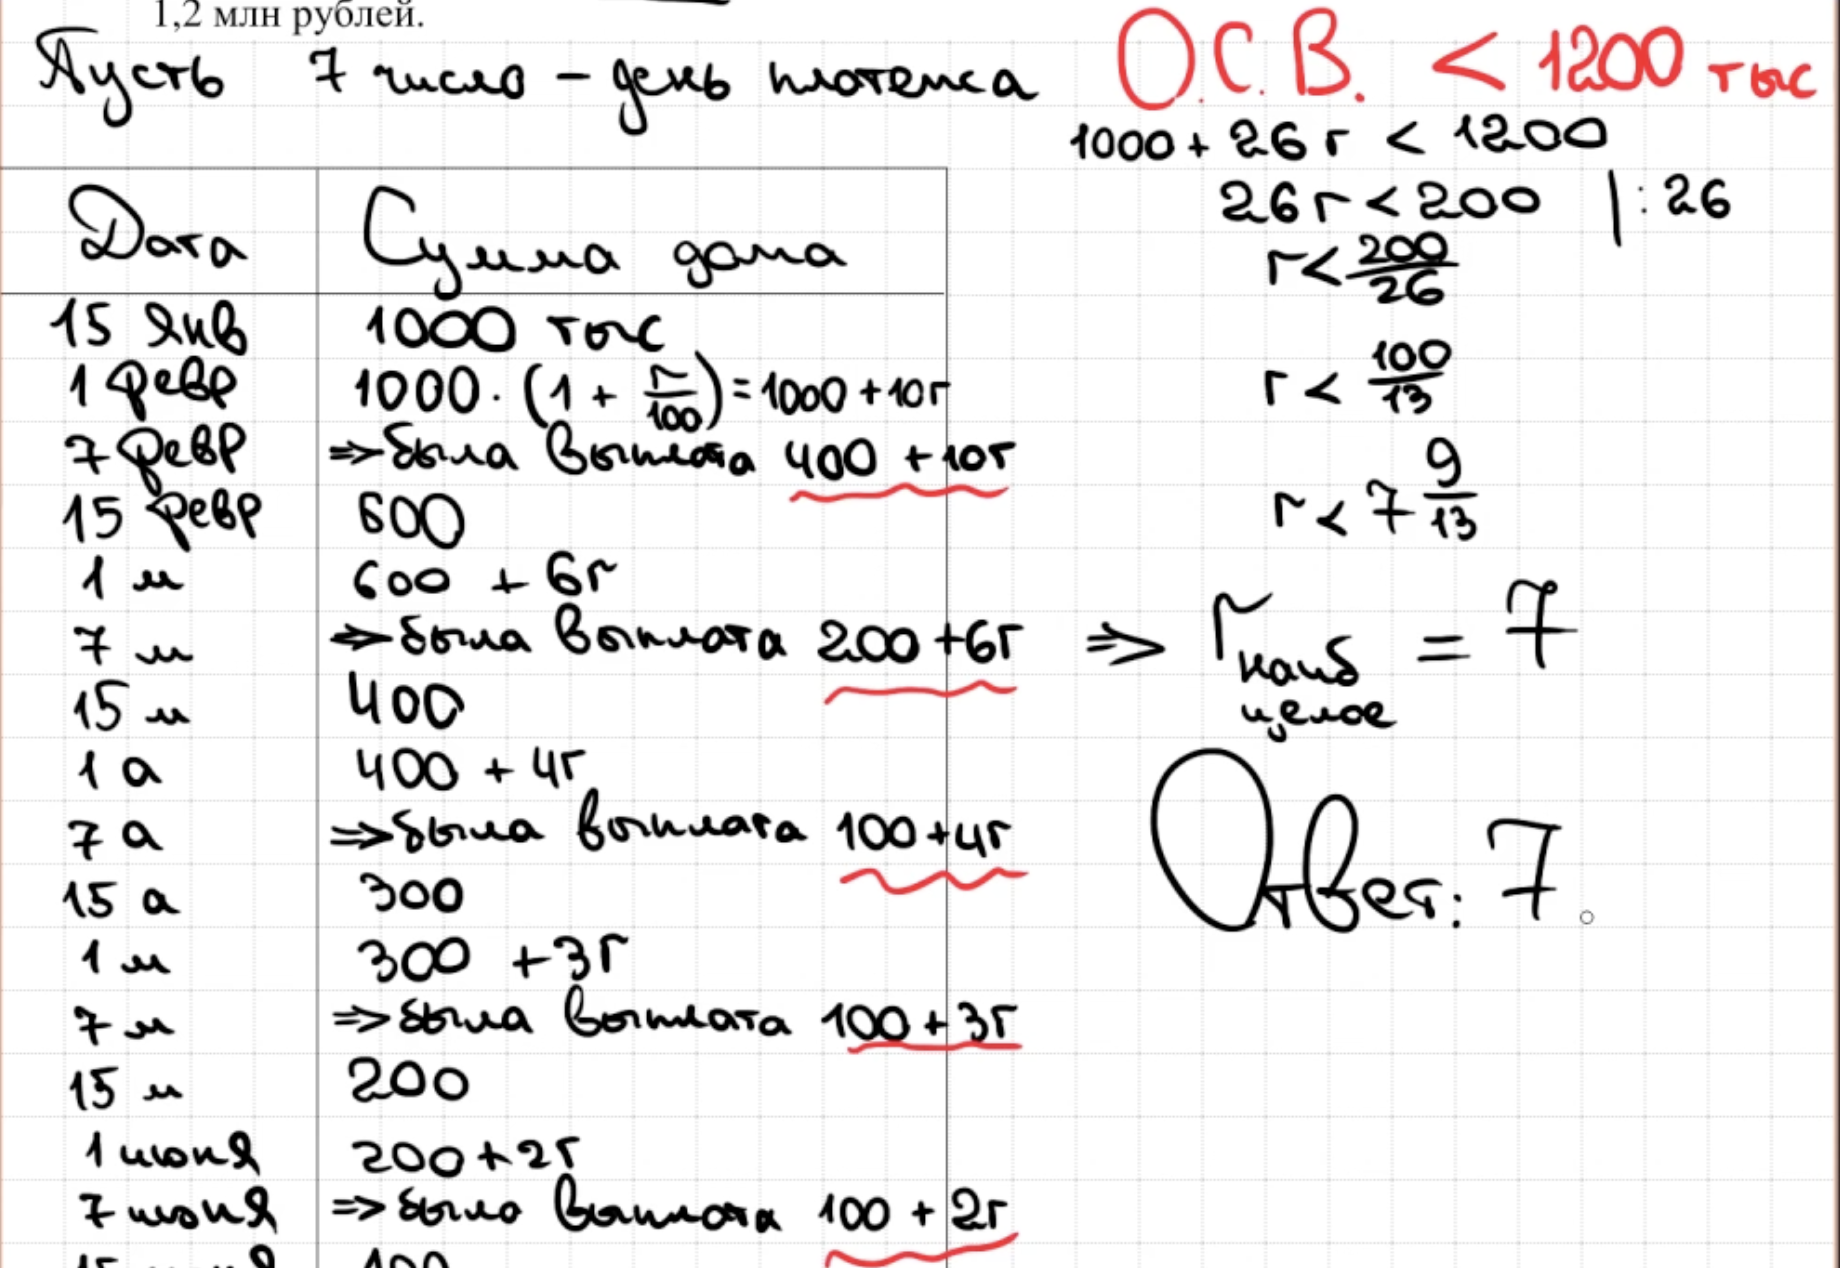 1,2 млн рублей.
Пусть 7 число – день платежа
Дата Сумма долга
15 янв 1000 тыс
1 февр 1000·(1 + r/100) = 1000 + 10r
7 февр => была выплата 400 + 10r
15 февр 600
1 м 600 + 6r
7 м => была выплата 200 + 6r
15 м 400
1 а 400 + 4r
7 а => была выплата 100 + 4r
15 а 300
1 м 300 + 3r
7 м => была выплата 100 + 3r
15 м 200
1 июня 200 + 2r
7 июня => была выплата 100 + 2r
15 июня 100
О.С.В. < 1200 тыс
1000 + 26r < 1200
26r < 200 | : 26
r < 200/26
r < 100/13
r < 7 9/13
=> r наиб целое = 7
Ответ: 7.